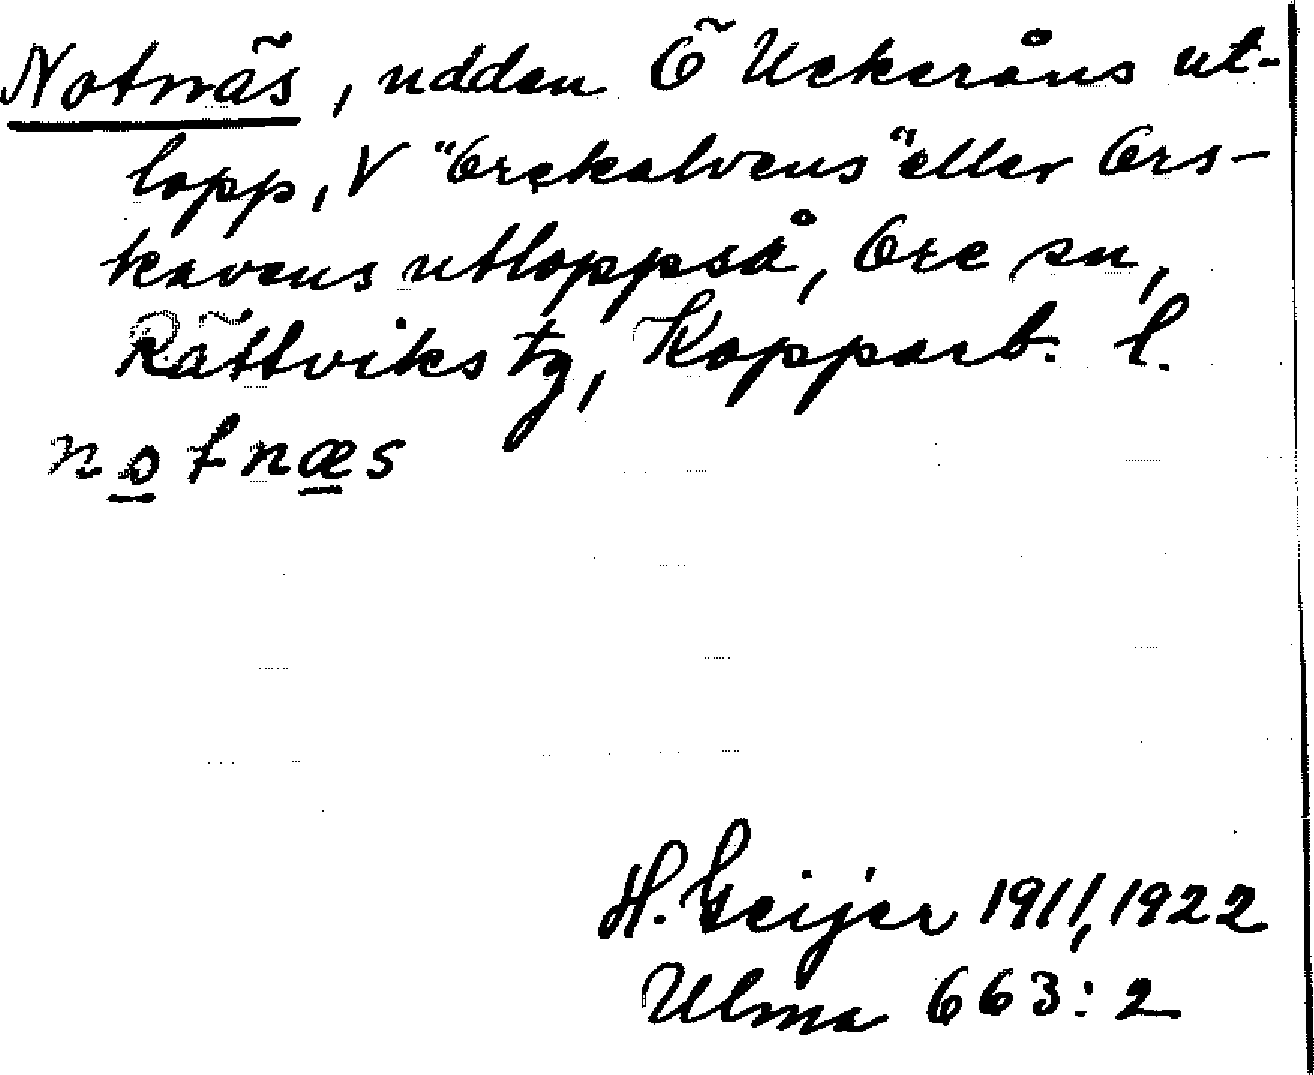 Notnäs, udden Ö Uckeråns ut-
lopp, V "Orekalvens" eller Ors-
kavens utloppså, Ore sn,
Rättviks tg, Kopparb. l.
notnæs
H. Geijer 1911, 1922
Ulma 663:2